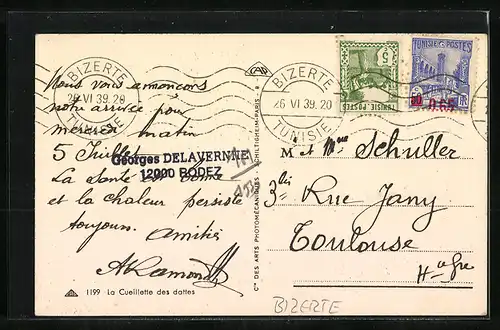 BIZERTE
26 VI 39.20
TUNISIE
Nous vous annonçons
notre arrivée pour
mercredi matin
5 Juillet.
La santé est bonne
et la chaleur persiste
toujours. Amitiés
ARamond
Georges DELAVERNHE
12000 RODEZ
1199 - La Cueillette des dattes
CIE DES ARTS PHOTOMÉCANIQUES - SCHILTIGHEIM-PARIS
CAP
BIZERTE
26 VI 39.20
TUNISIE
5
TUNISIE POSTES
TUNISIE POSTES
0,65
M et Mme Schuller
3 bis Rue Jany
Toulouse
Hte Gne
BIZERTE